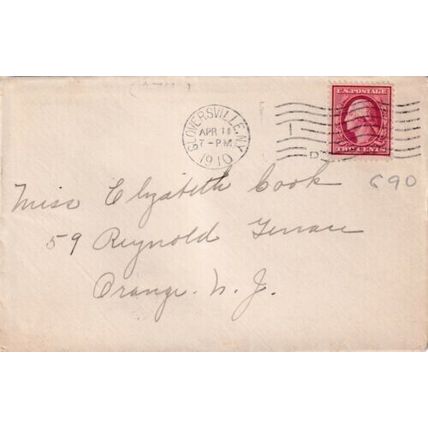 GLOVERSVILLE, N.Y.
APR 11
7-PM
1910
U.S. POSTAGE
TWO CENTS
Miss Elyzabeth Cook
690
59 Reynold Terrace
Orange. N. J.